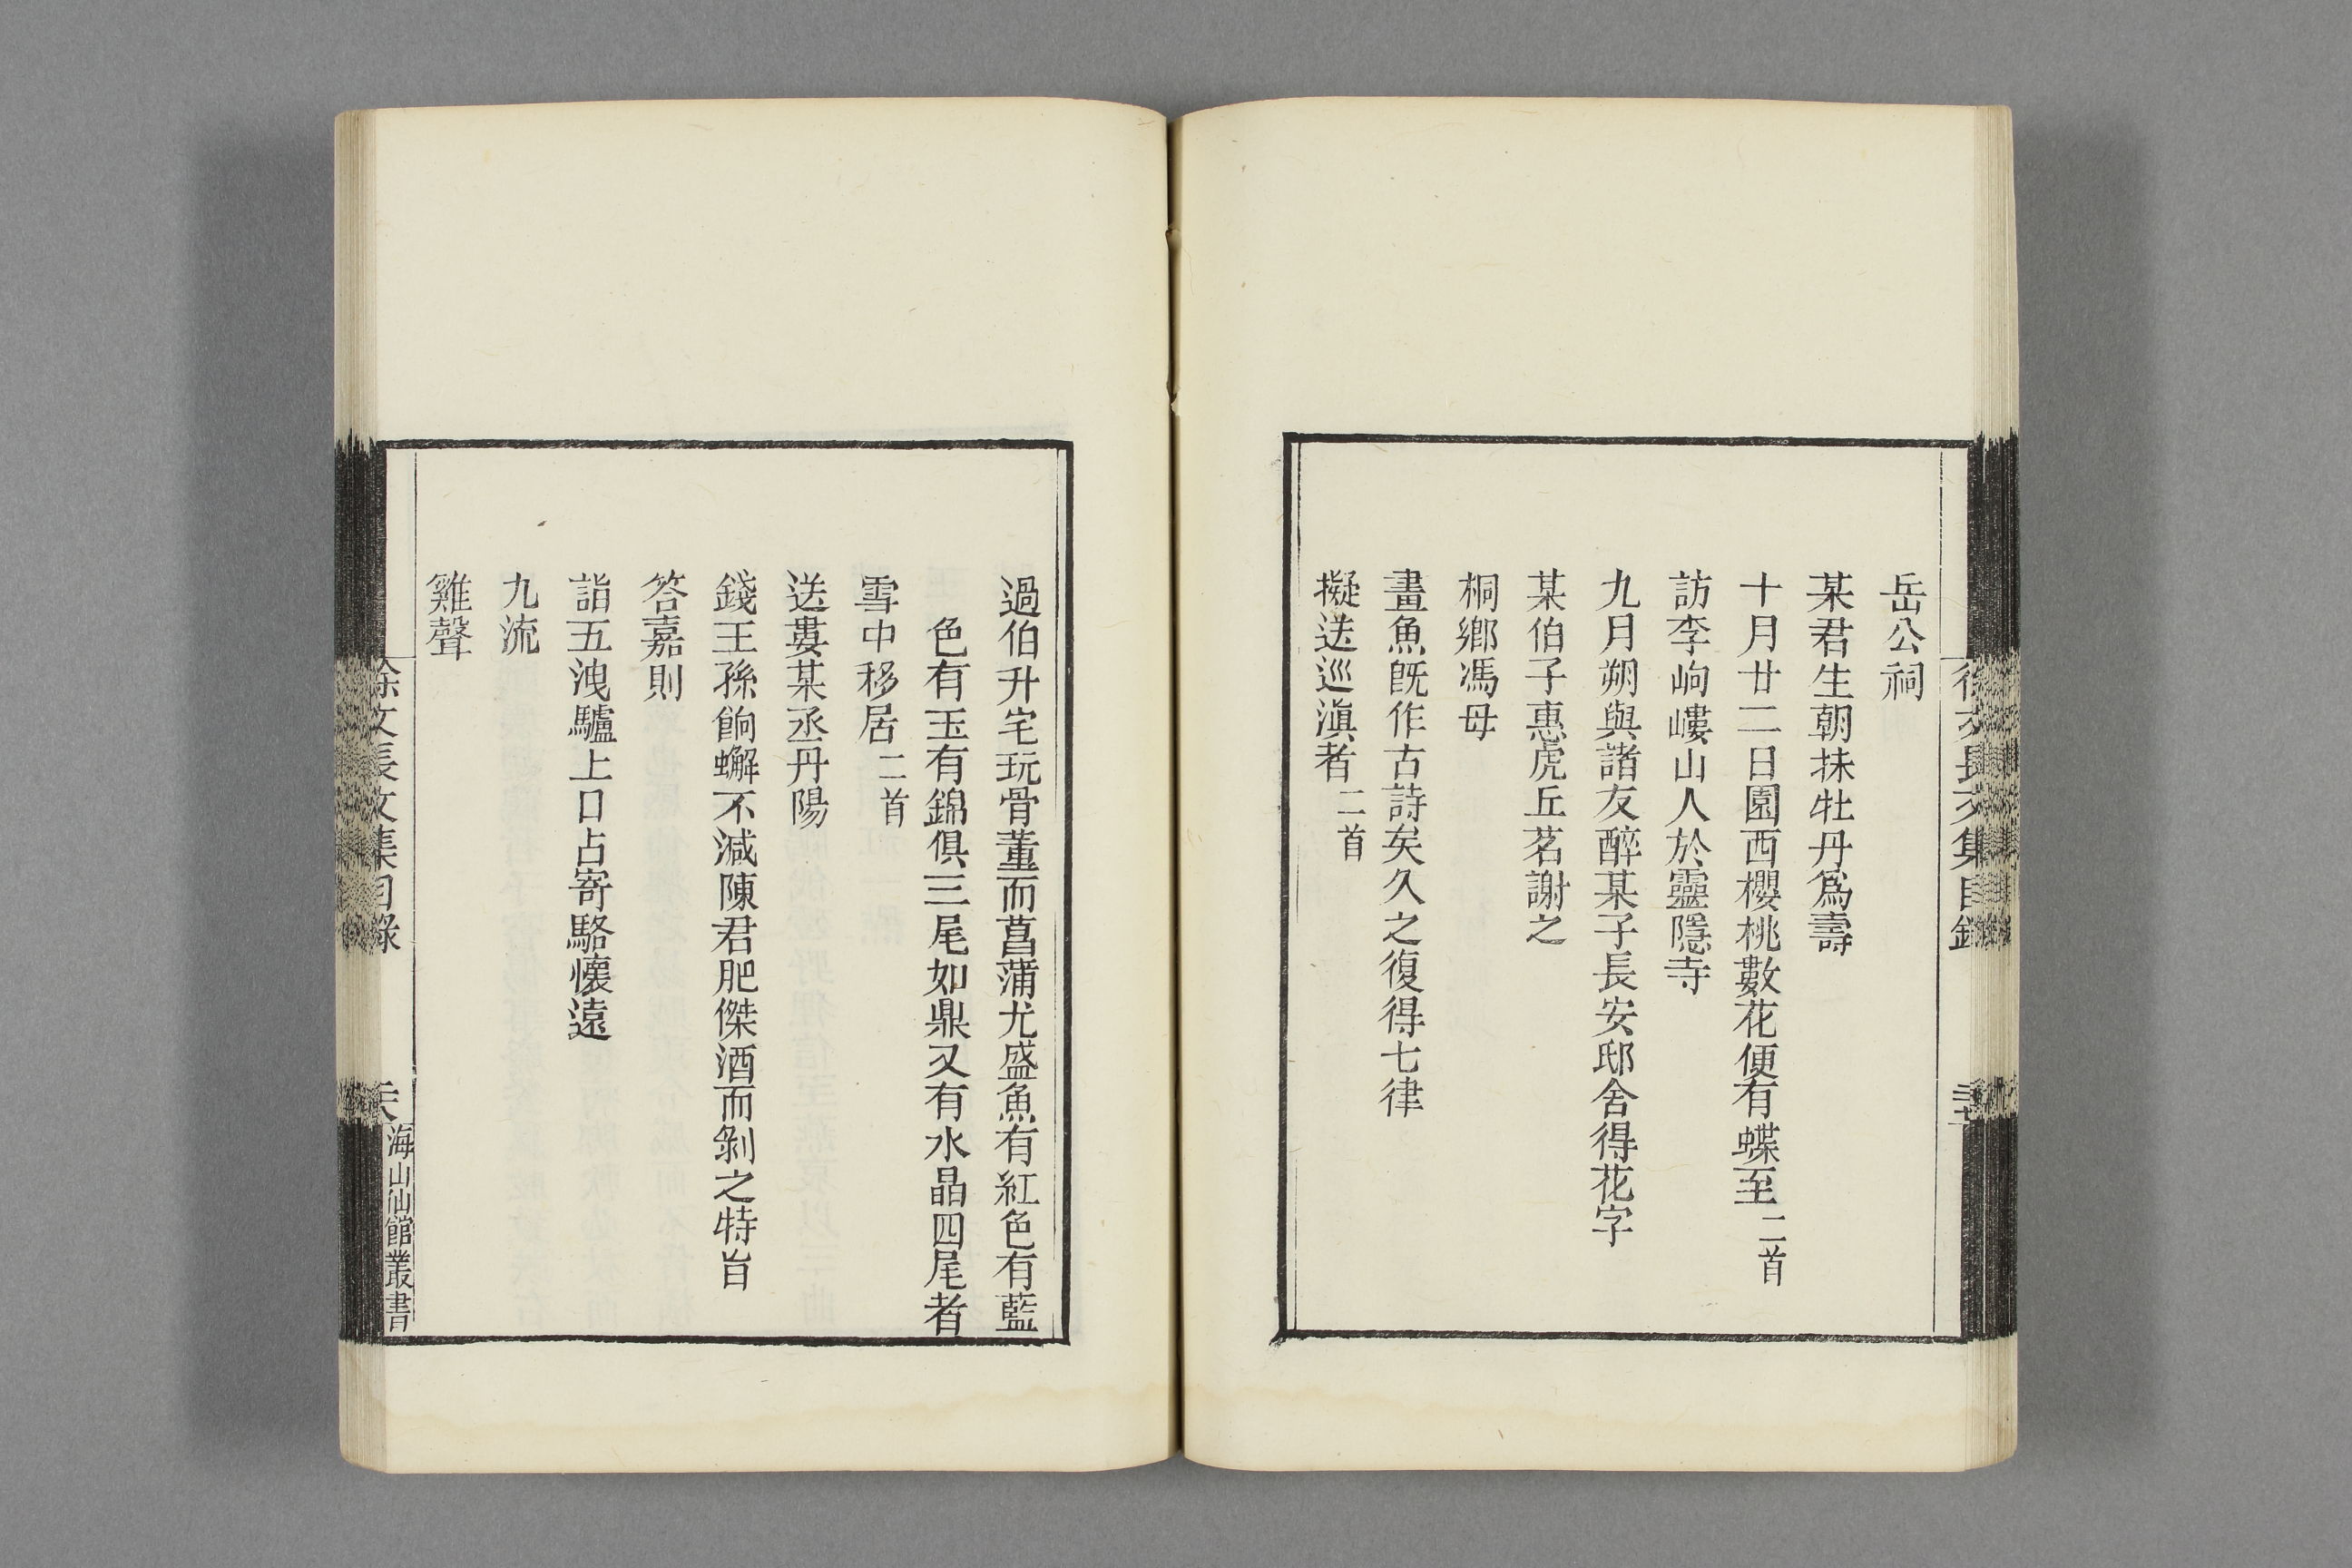 岳公祠
某君生朝抹牡丹爲壽
十月廿二日園西櫻桃數花便有蝶至二首
訪李岣嶁山人於靈隱寺
九月朔與諸友醉某子長安邸舍得花字
某伯子惠虎丘茗謝之
桐鄉馮母
畫魚旣作古詩矣久之復得七律
擬送巡滇者二首
過伯升宅玩骨董而菖蒲尤盛魚有紅色有藍
色有玉有錦俱三尾如鼎又有水晶四尾者
雪中移居二首
送婁某丞丹陽
錢王孫餉蠏不減陳君肥傑酒而剝之特旨
答嘉則
詣五洩驢上口占寄駱懷遠
九流
雞聲
徐文長文集目錄
海山仙館叢書